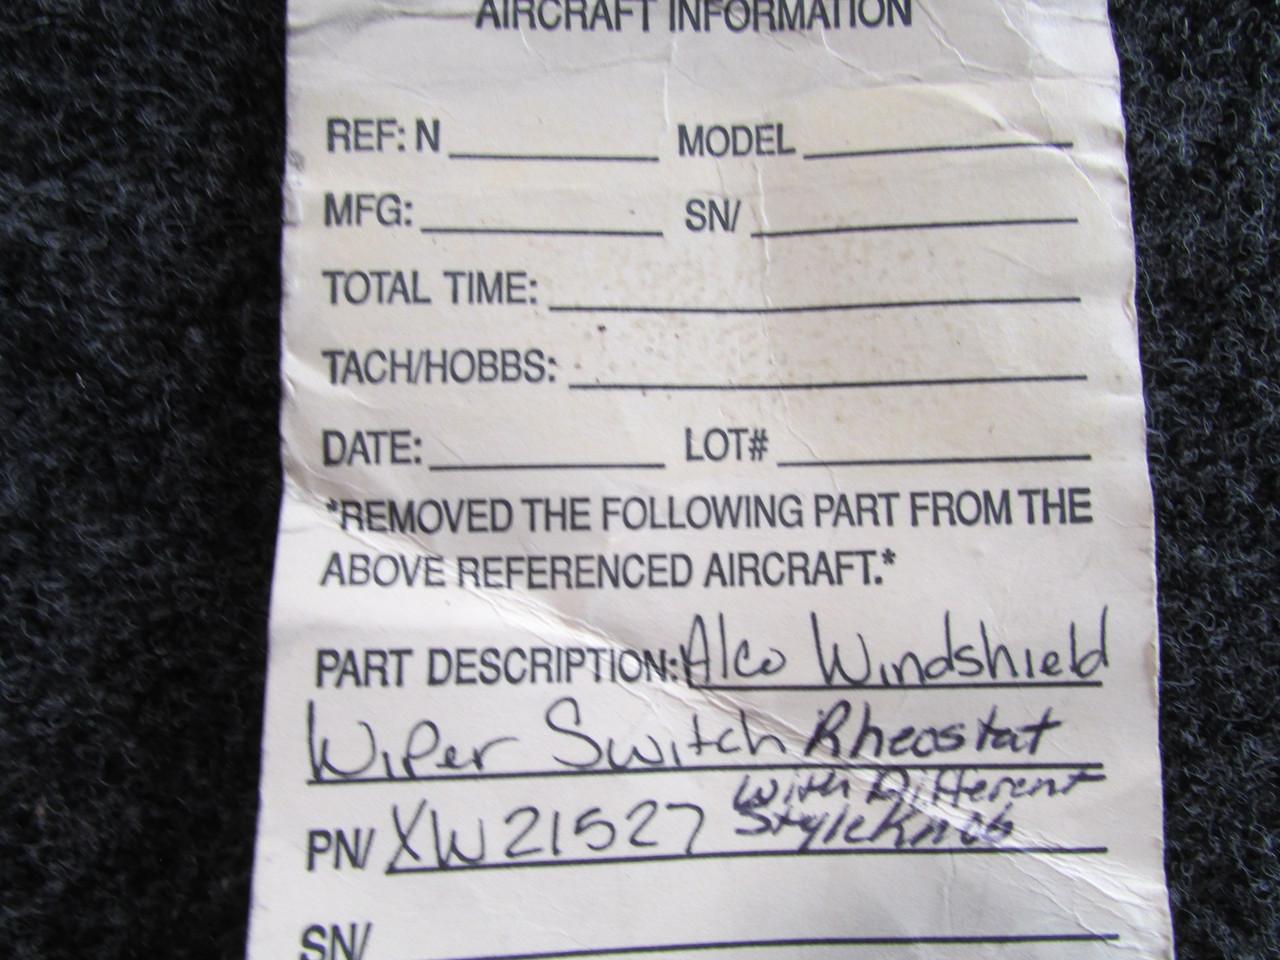 AIRCRAFT INFORMATION
REF: N MODEL
MFG: SN/
TOTAL TIME:
TACH/HOBBS:
DATE: LOT#
*REMOVED THE FOLLOWING PART FROM THE
ABOVE REFERENCED AIRCRAFT.*
PART DESCRIPTION: Alco Windshield
Wiper Switch Rheostat
With Different
PN/ XW21527 Style Knob
SN/